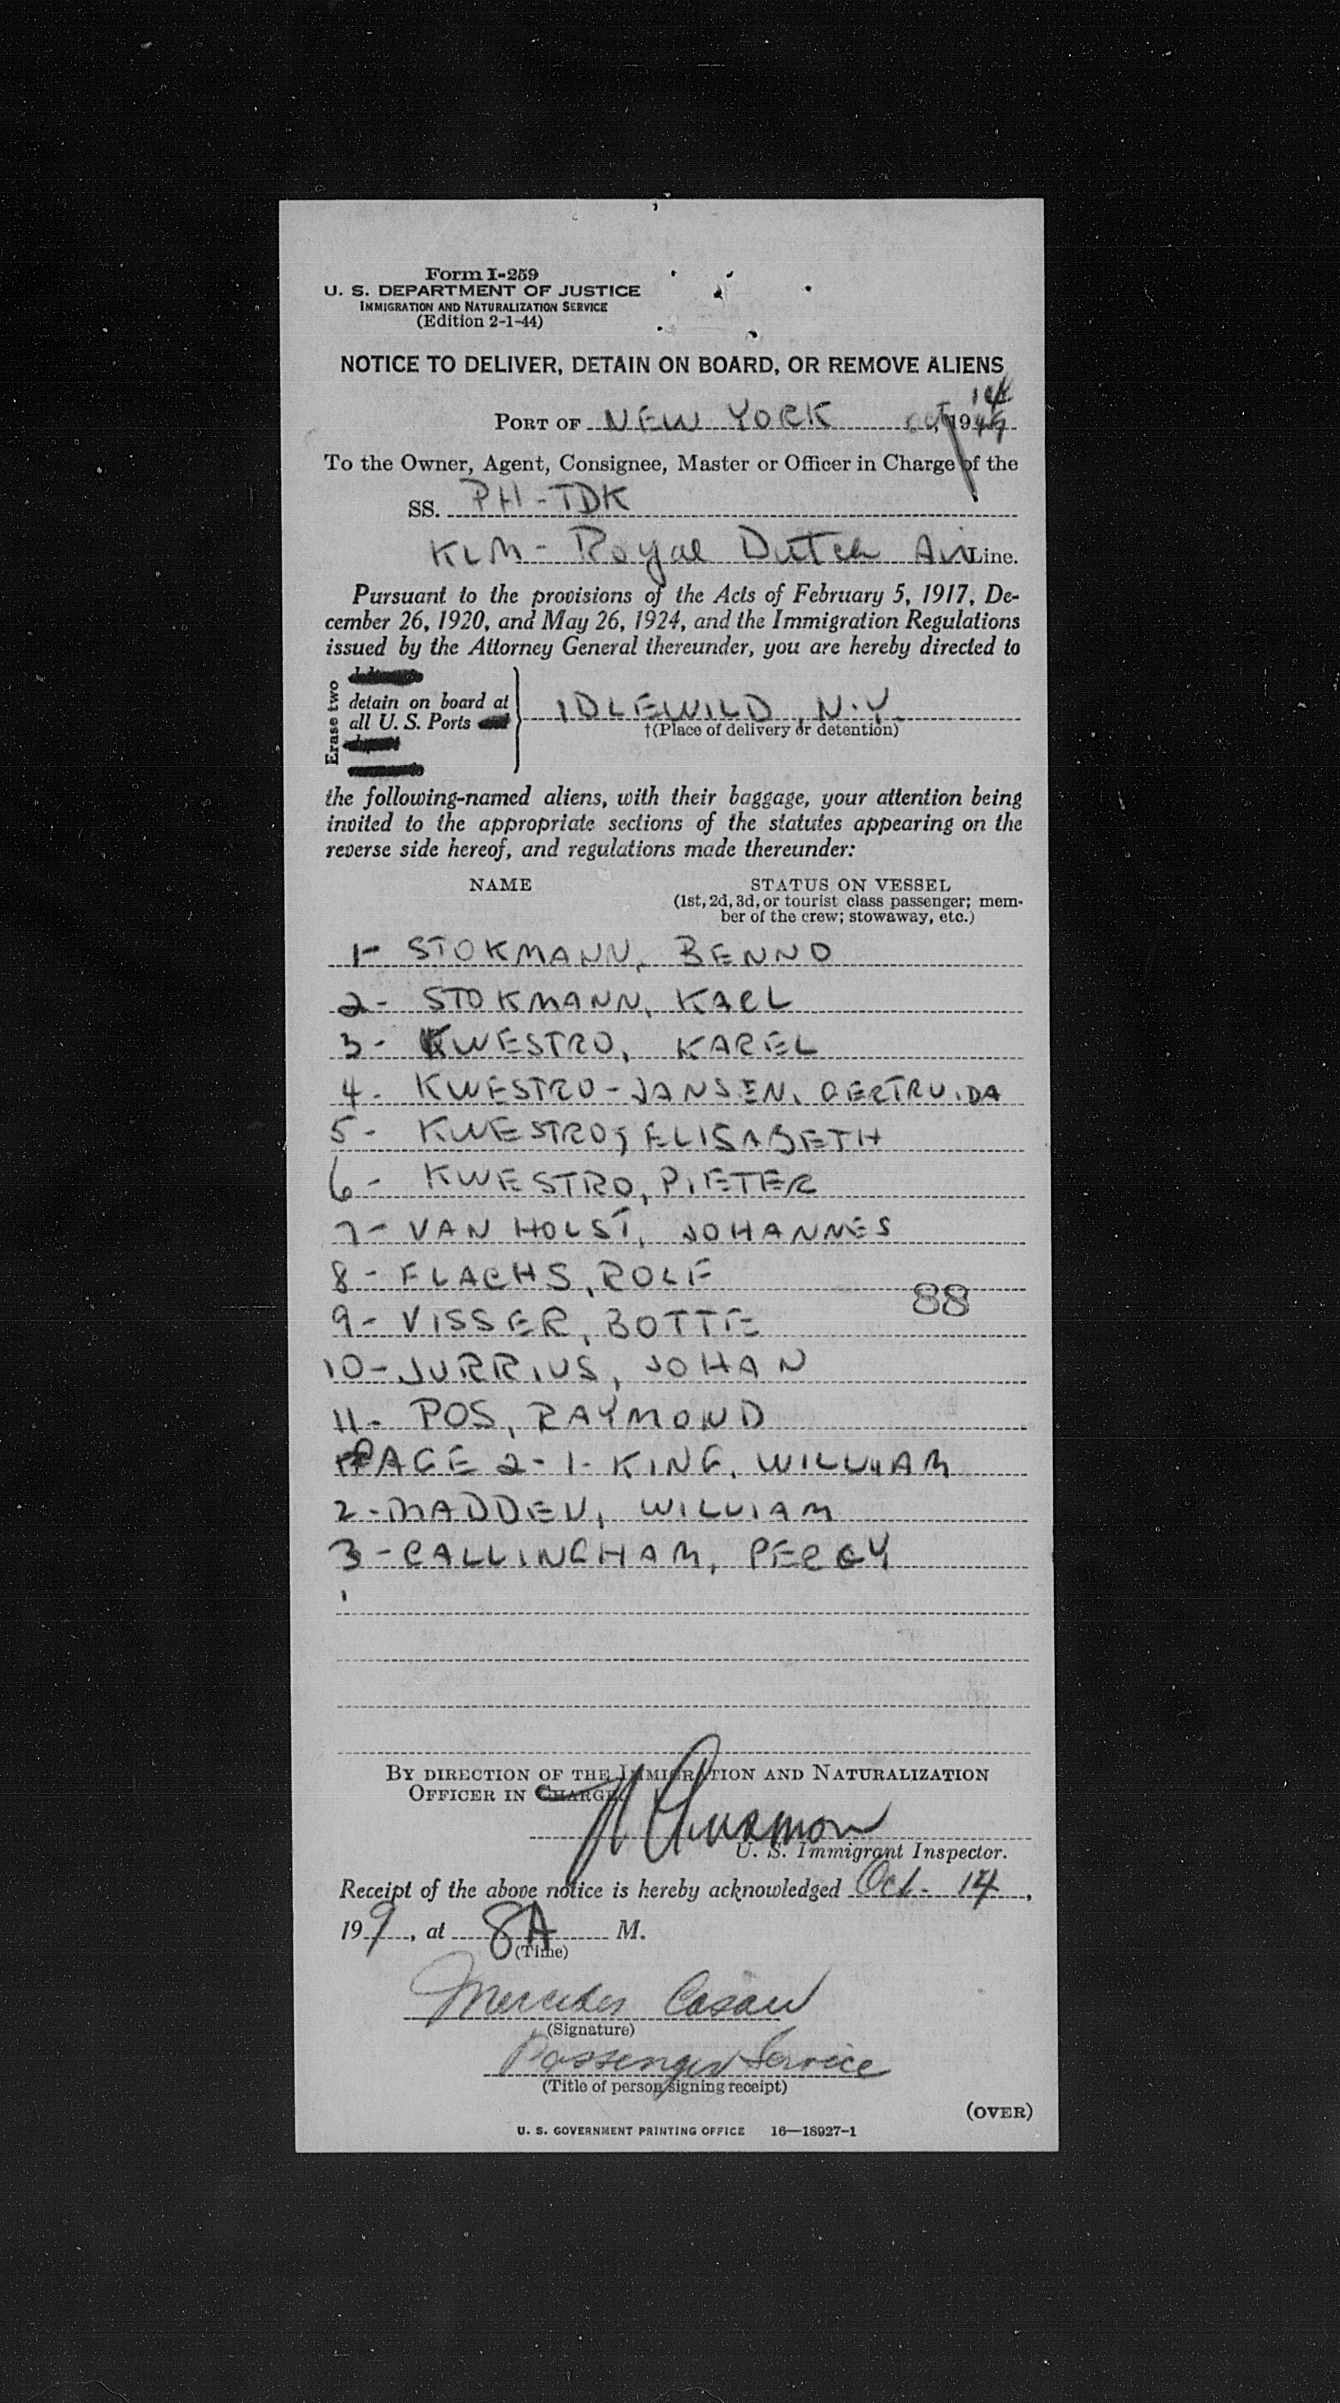 Form I-259
U. S. DEPARTMENT OF JUSTICE
IMMIGRATION AND NATURALIZATION SERVICE
(Edition 2-1-44)
NOTICE TO DELIVER, DETAIN ON BOARD, OR REMOVE ALIENS
14
PORT OF NEW YORK Oct, 1949
To the Owner, Agent, Consignee, Master or Officer in Charge of the
SS. PH-TDK
KLM - Royal Dutch Air Line.
Pursuant to the provisions of the Acts of February 5, 1917, De-
cember 26, 1920, and May 26, 1924, and the Immigration Regulations
issued by the Attorney General thereunder, you are hereby directed to
Erase two
detain on board at
all U. S. Ports
IDLEWILD, N.Y.
†(Place of delivery or detention)
the following-named aliens, with their baggage, your attention being
invited to the appropriate sections of the statutes appearing on the
reverse side hereof, and regulations made thereunder:
NAME STATUS ON VESSEL
(1st, 2d, 3d, or tourist class passenger; mem-
ber of the crew; stowaway, etc.)
1- STOKMANN, BENNO
2- STOKMANN, KARL
3- KWESTRO, KAREL
4- KWESTRO-JANSEN, GERTRUIDA
5- KWESTRO, ELISABETH
6- KWESTRO, PIETER
7- VAN HOLST, JOHANNES
8- FLACHS, ROLF
88
9- VISSER, BOTTE
10- JURRIUS, JOHAN
11- POS, RAYMOND
PAGE 2- 1- KING, WILLIAM
2- MADDEN, WILLIAM
3- CALLINGHAM, PERCY
BY DIRECTION OF THE IMMIGRATION AND NATURALIZATION
OFFICER IN CHARGE.
U. S. Immigrant Inspector.
Receipt of the above notice is hereby acknowledged Oct. 14,
199, at 8A M.
(Time)
Mercedes
(Signature)
Passenger Service
(Title of person signing receipt)
(OVER)
U. S. GOVERNMENT PRINTING OFFICE 16—18927-1